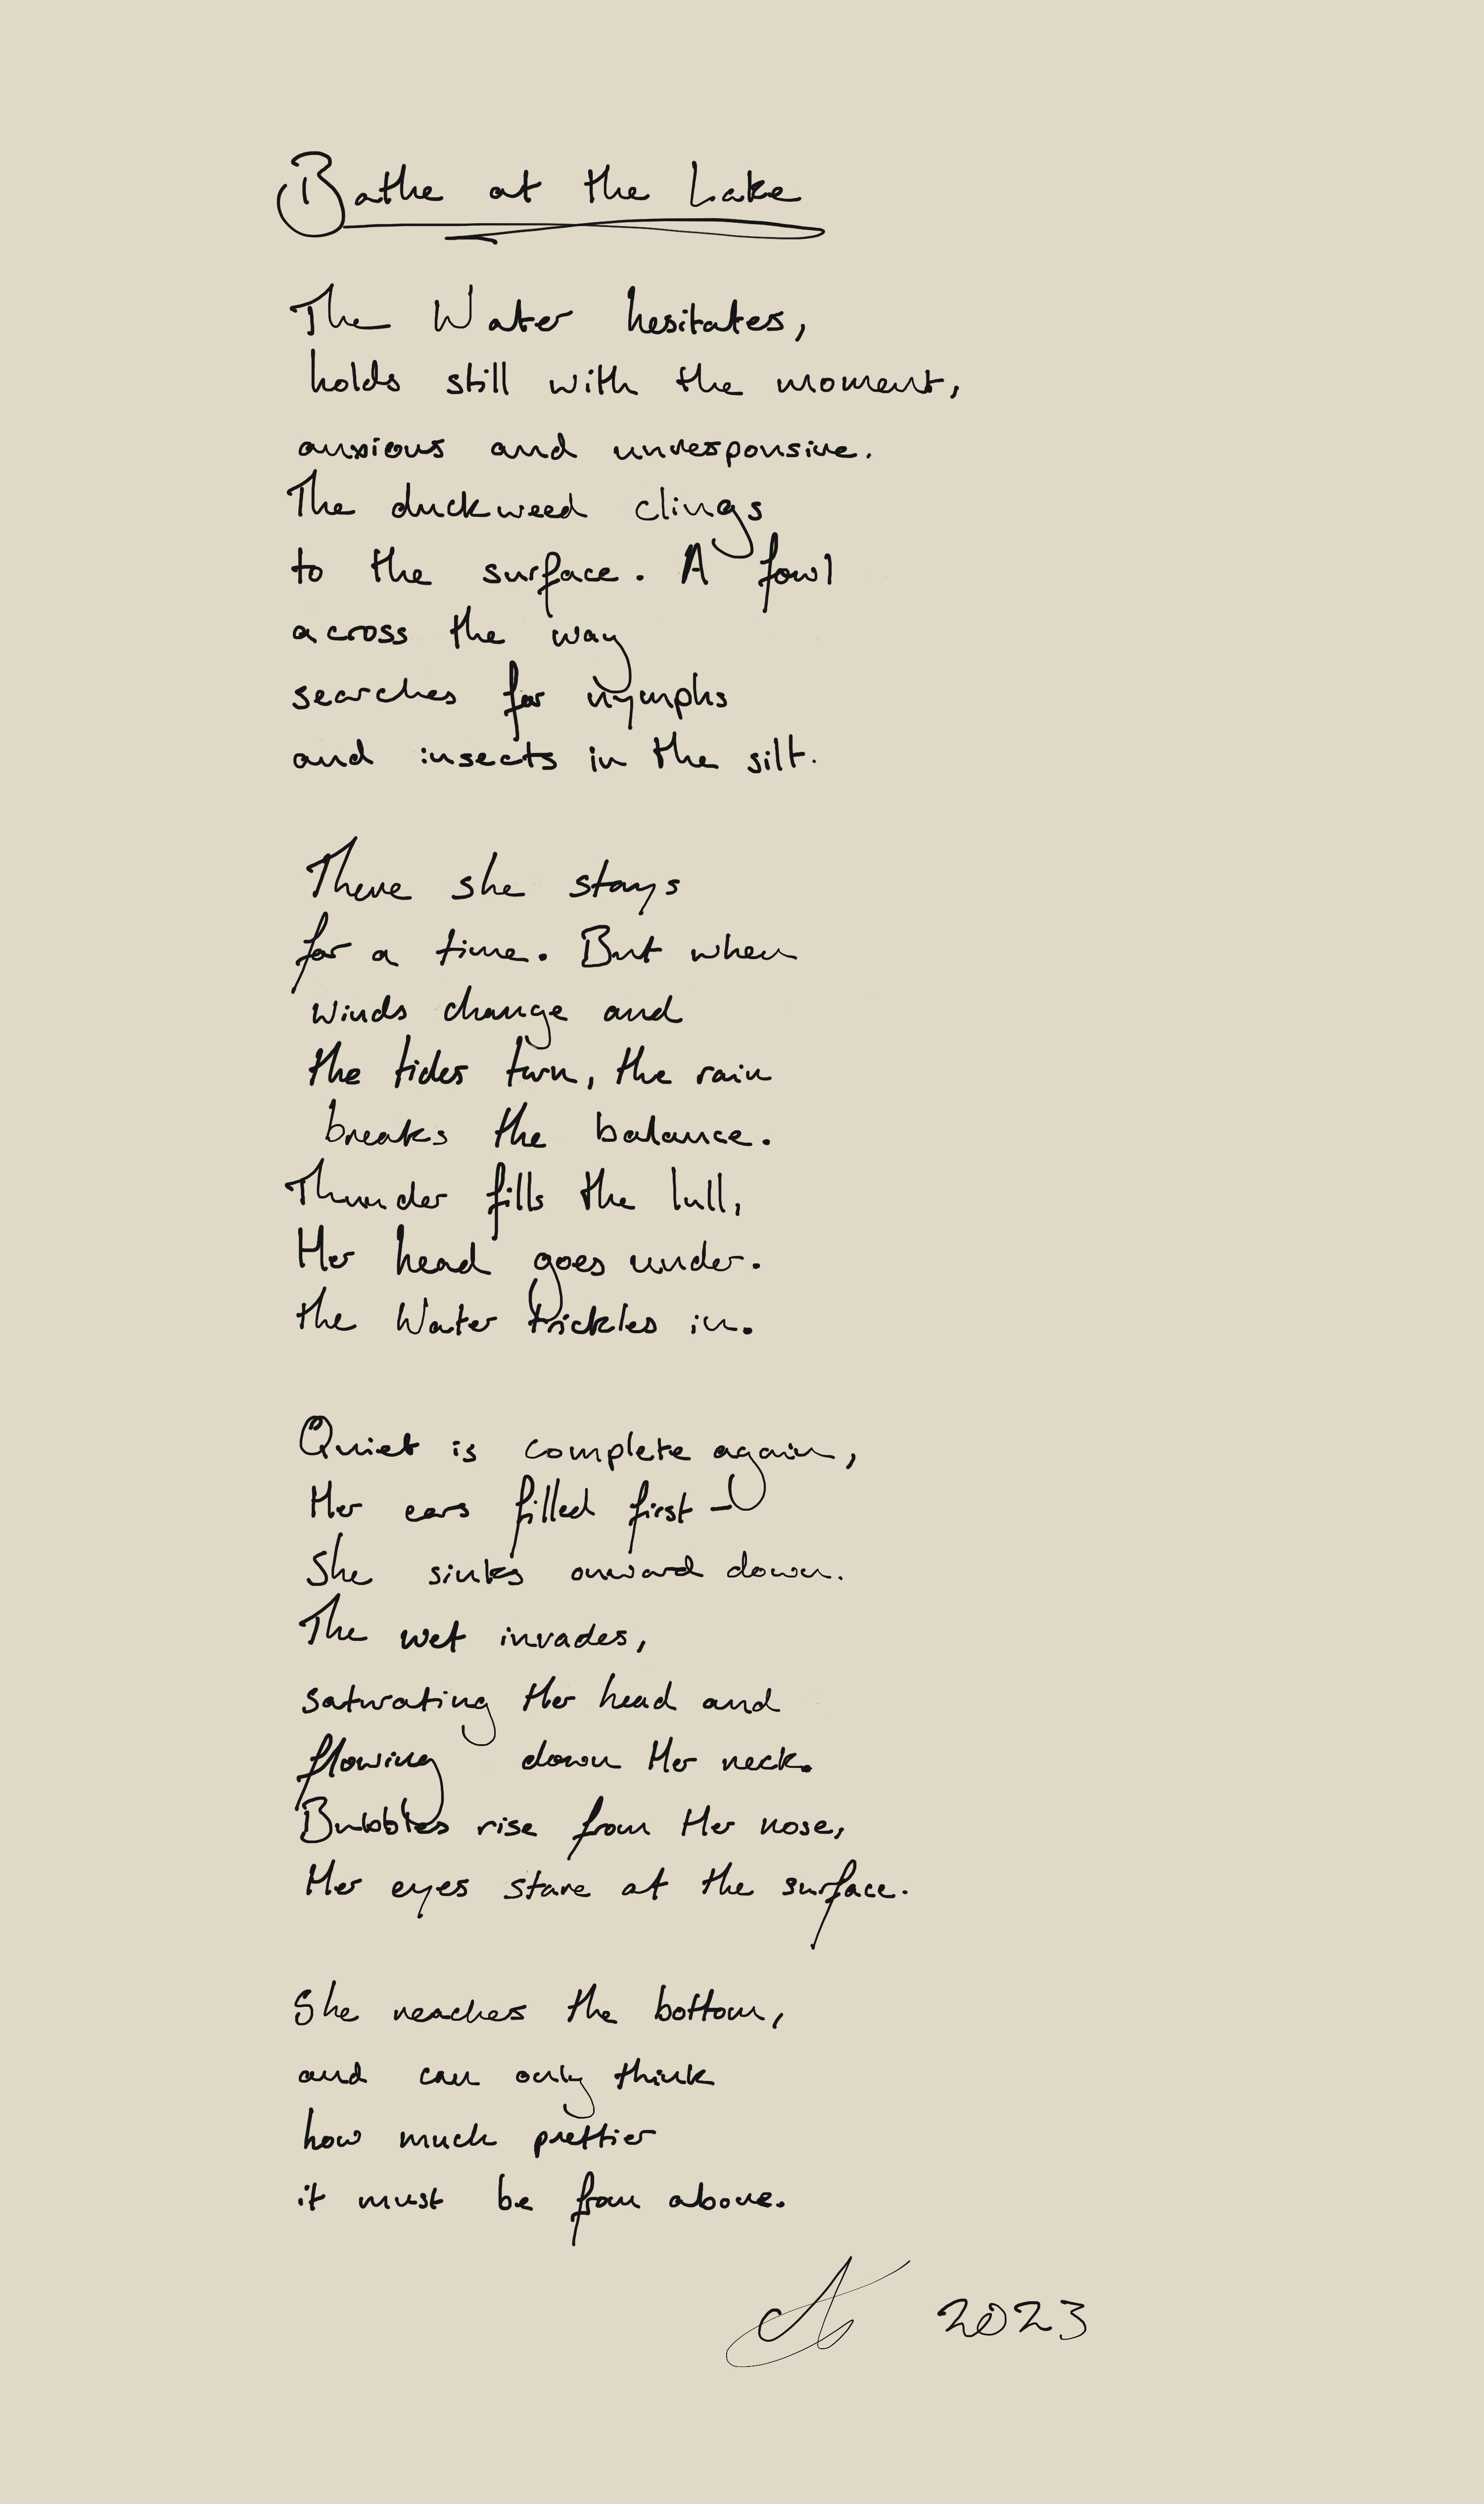 Bathe at the Lake
The Water hesitates,
holds still with the moment,
anxious and unresponsive.
The duckweed clings
to the surface. A fowl
across the way
searches for nymphs
and insects in the silt.
There she stays
for a time. But when
winds change and
the tides turn, the rain
breaks the balance.
Thunder fills the lull,
Her head goes under.
the Water trickles in.
Quiet is complete again,
Her ears filled first -
She sinks onward down.
The wet invades,
saturating Her head and
flowing down Her neck.
Bubbles rise from Her nose,
Her eyes stare at the surface.
She reaches the bottom,
and can only think
how much prettier
it must be from above.
2023